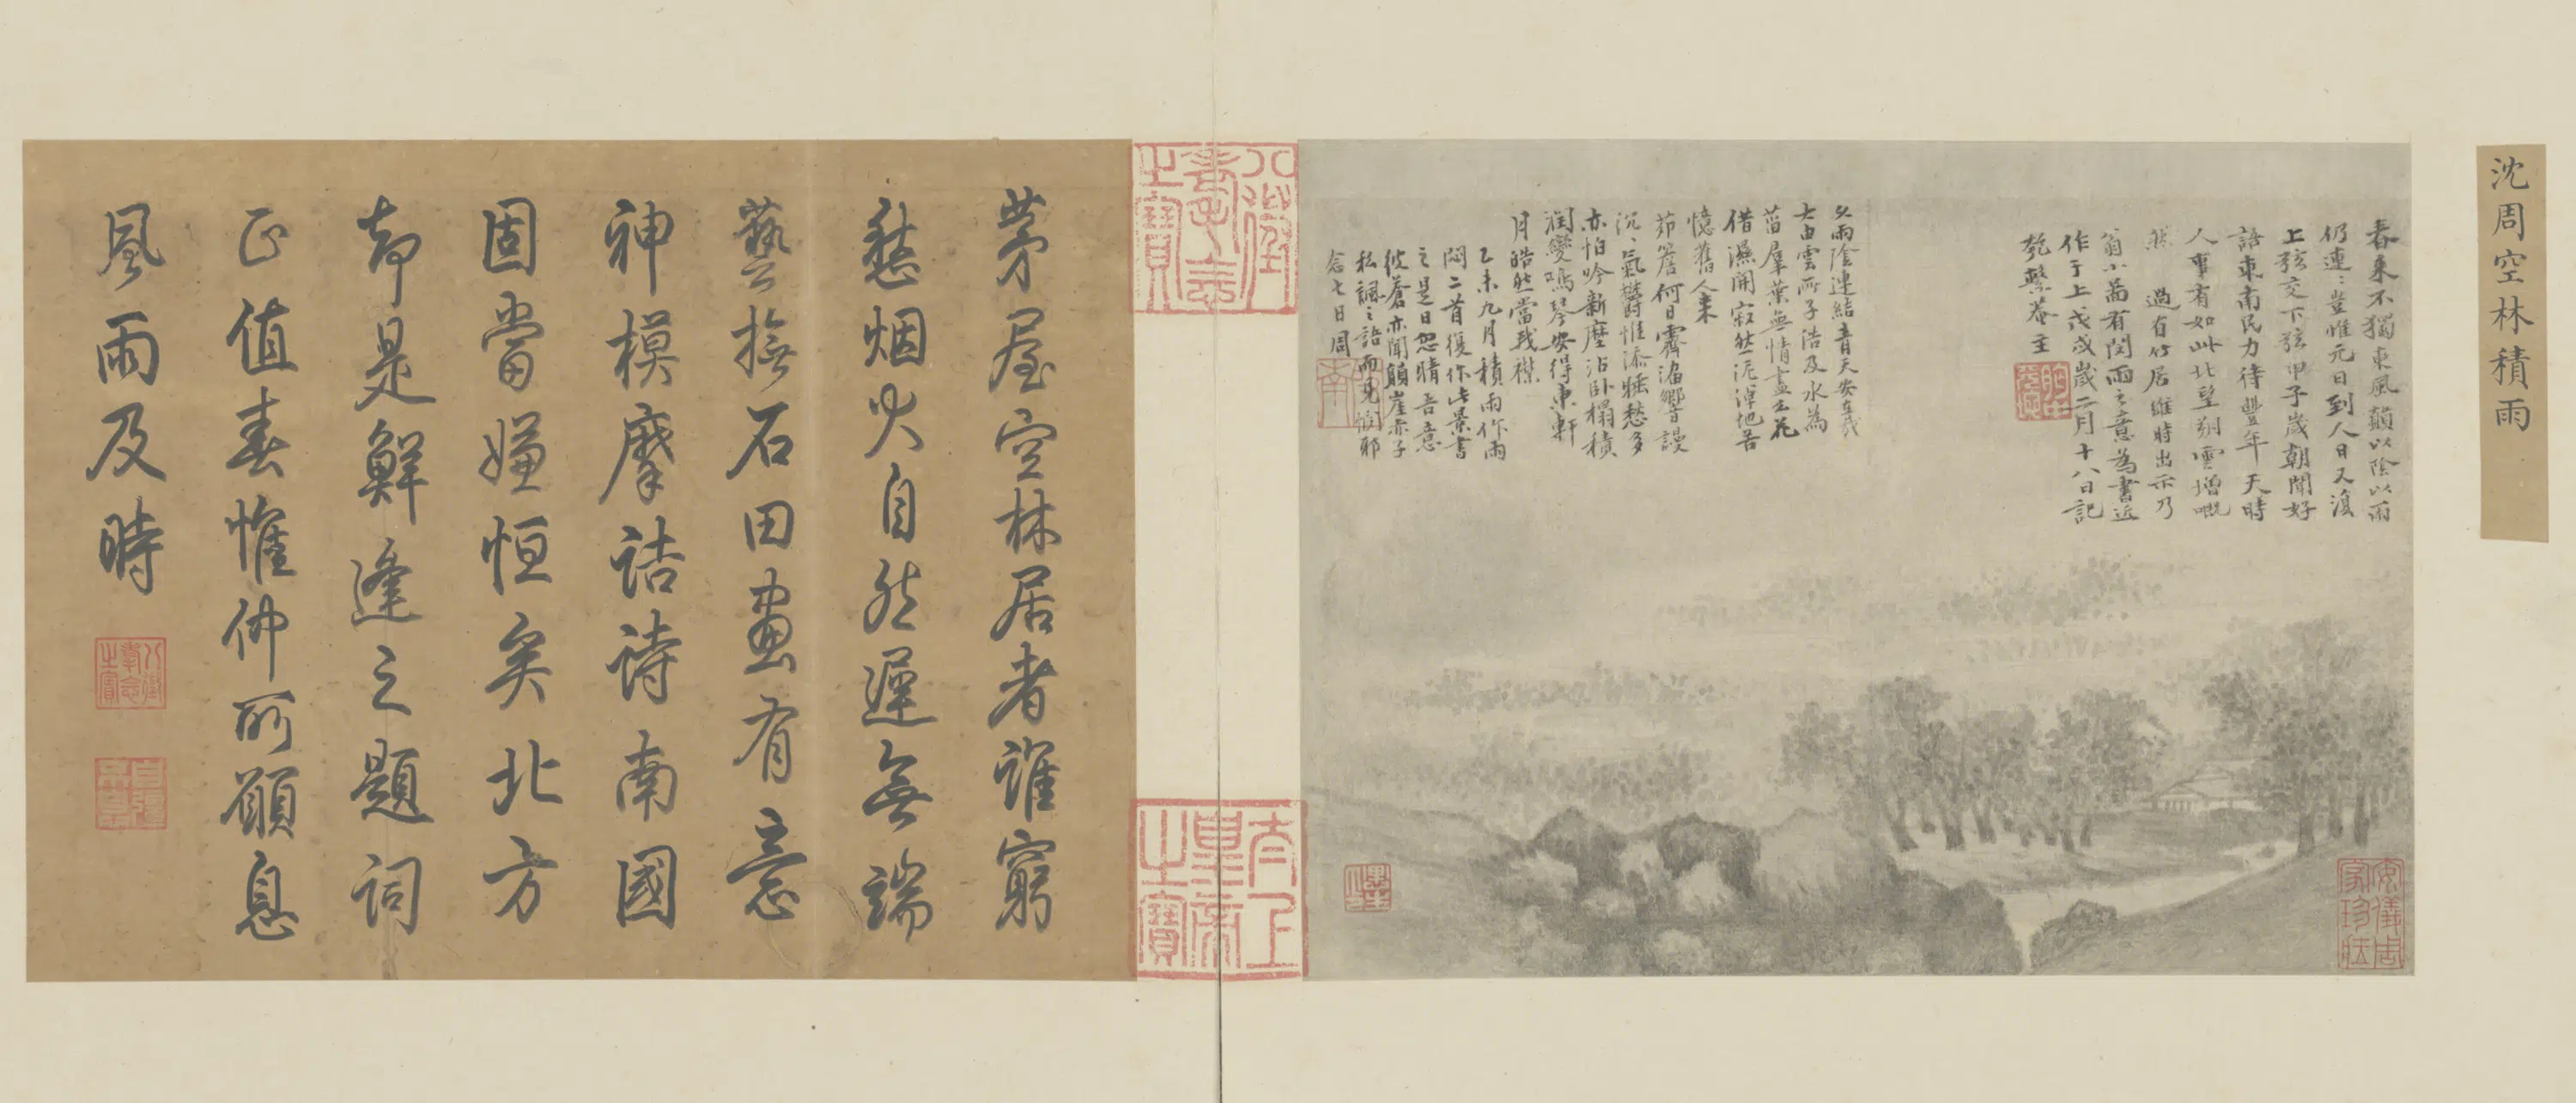 沈周空林積雨
春來不獨東風顛以陰以雨
仍連〻豈惟元日到人日又復
上弦交下弦甲子歲朝聞好
語東南民力待豐年天時
人事有如此北望朔雲增嘅
然 過有竹居維時出示乃
翁小圖有閔雨之意為書近
作于上戊戌歲二月十八日記
乾 菴主
久雨陰連結青天安在哉
大由雲所子浩及水為
菑羣葉無情盡土花
借濕開寂然泥淖地苦
憶舊人來
茆簷何日霽溜響謾
沉〻氣鬱惟添睡愁多
亦怕吟新塵沾臥榻積
潤變鳴琴安得東軒
月皓然當我襟
乙未九月積雨作雨
悶二首復作此景書
之是日忽晴吾意
彼蒼亦聞顛崖赤子
私 〻語而見憫耶
念七日周
八徵耄念之寶
太上皇帝之寶
安儀周家珍藏
茅屋空林居者誰窮
愁烟火自然遲無端
藝撫石田畫有意
神模摩詰詩南國
固當嫌恒矣北方
却是鮮逢之題詞
正值春惟仲所願息
風雨及時
八徵耄念之寶